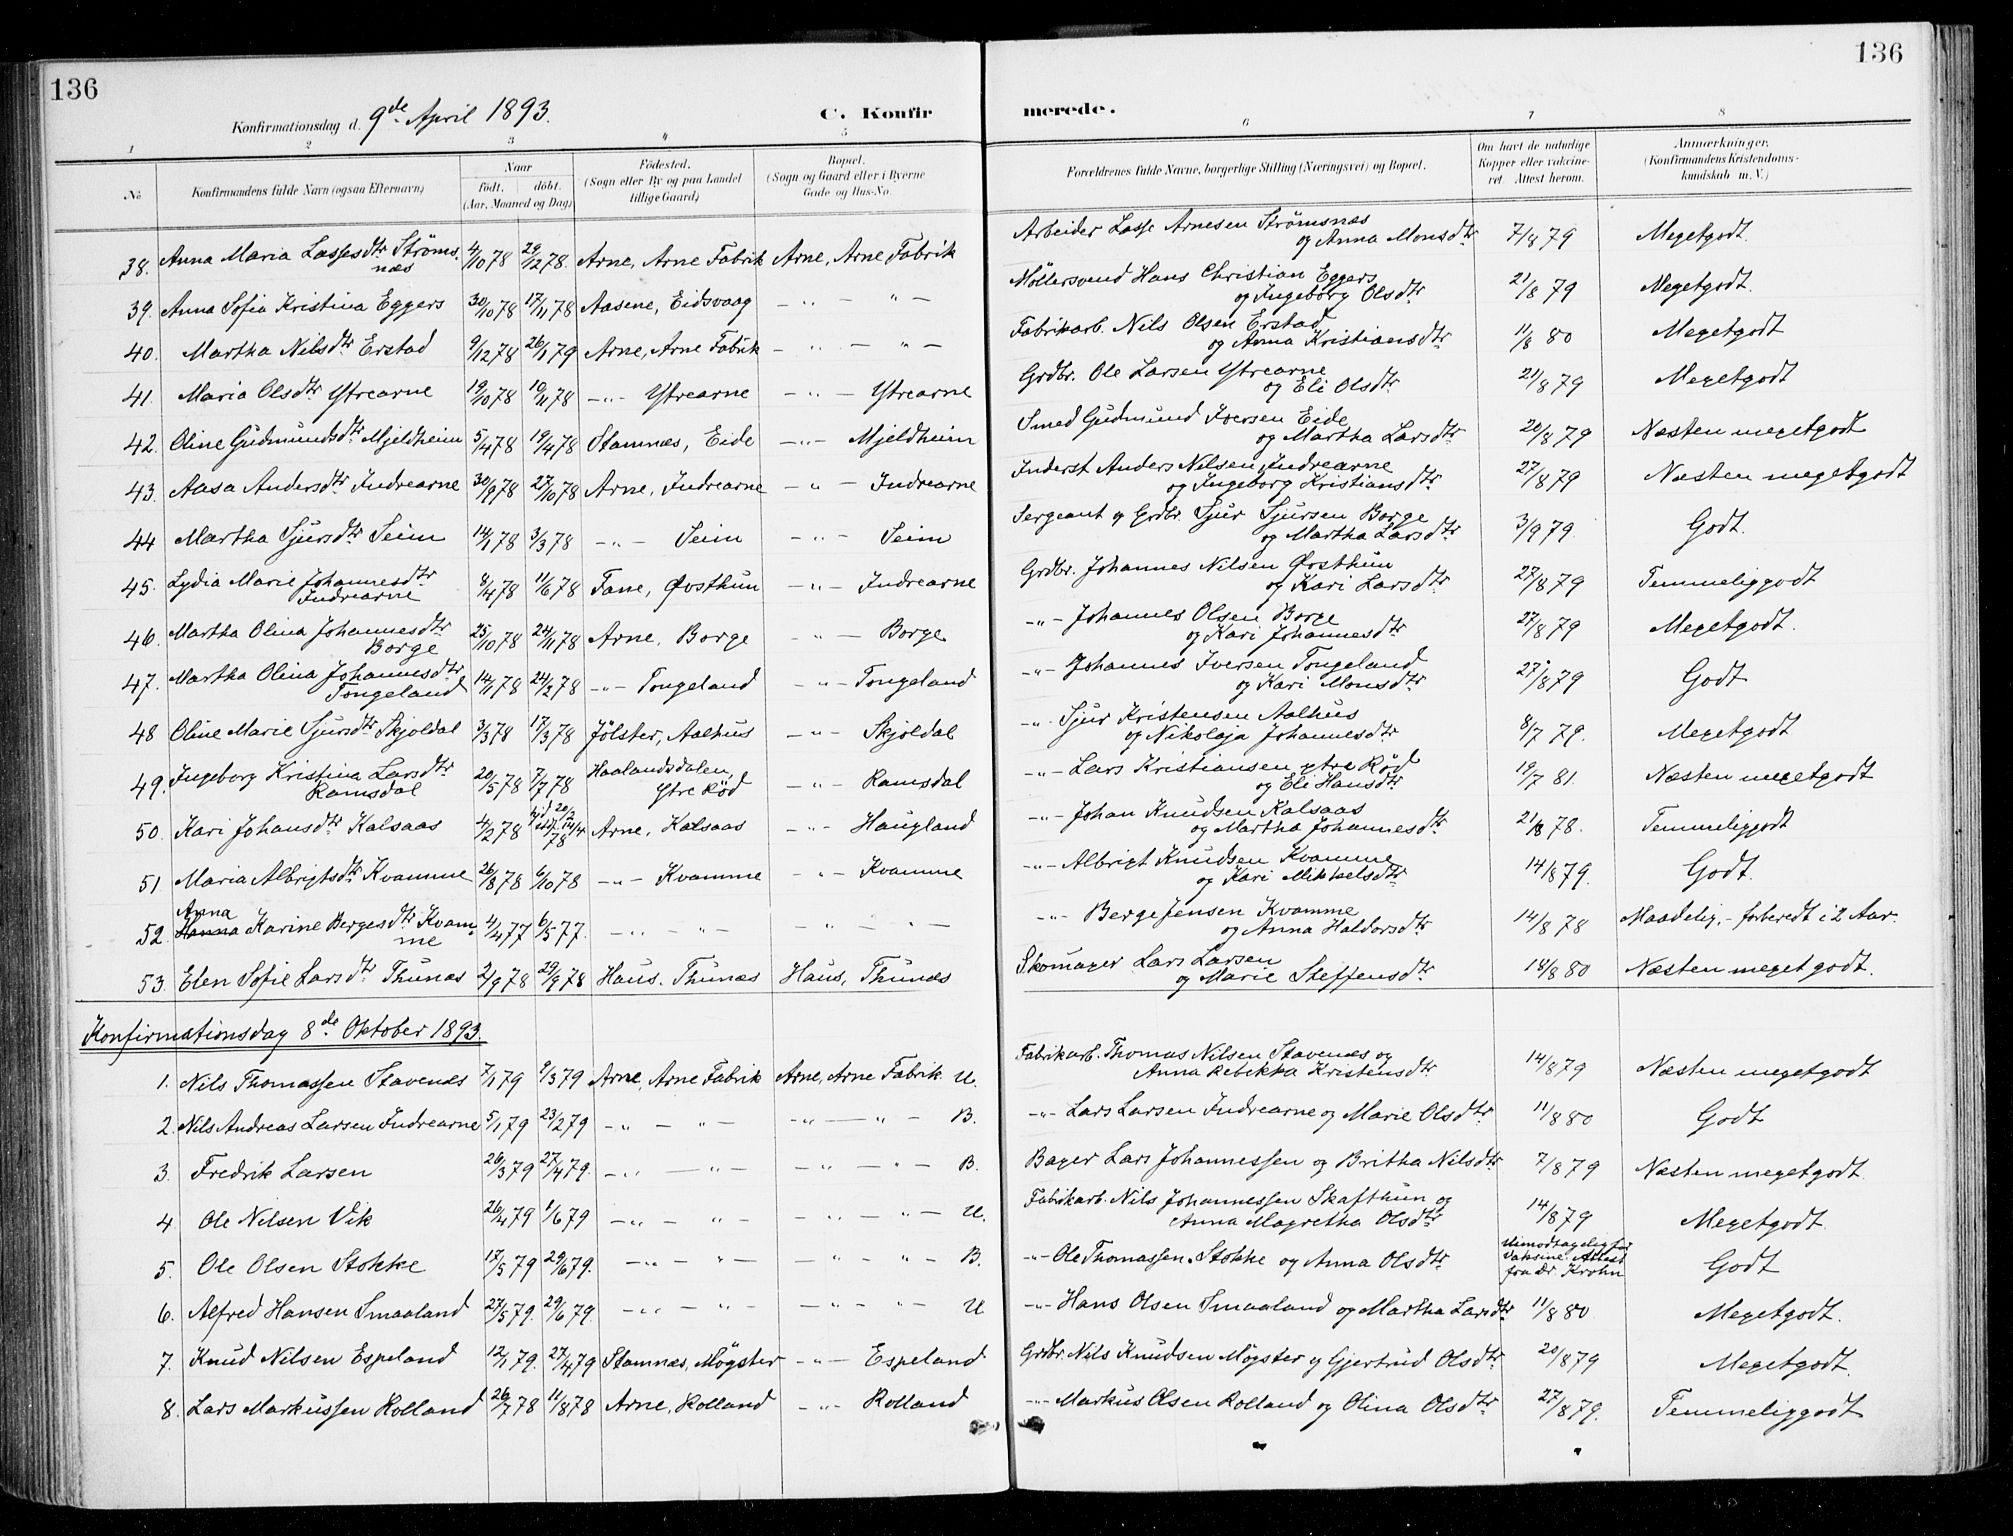 136
136
Konfirmationsdag d. 9de April 1893.
C. Konfir merede.
1 2 3 4 5 6 7 8
No
Konfirmandens fulde Navn (ogsaa Efternavn)
Naar
födt. döbt.
(Aar, Maaned og Dag)
Födested.
(Sogn eller By og paa Landet
tillige Gaard)
Bopæl.
(Sogn og Gaard eller i Byerne
Gade og Hus-No.
Forældrenes fulde Navne, borgerlige Stilling (Næringsvei) og Bopæl.
Om havt de naturlige
Kopper eller vakcine-
ret. Attest herom.
Anmærkninger.
(Konfirmandens Kristendoms-
kundskab m. V.)
38. Anna Maria Lassesdtr Ströms- 4/10 78 29/12 78. Arne, Arne Fabrik Arne, Arne Fabrik Arbeider Lasse Arnesen Strömsnæs 7/8 79 Megetgodt.
næs og Anna Monsdtr
39. Anna Sofia Kristina Eggers 30/10 78 17/11 78 Aasene, Eidsvaag - " - " - Möllersvend Hans Christian Eggers 21/8 79 Megetgodt.
og Ingeborg Olsdtr
40. Martha Nilsdtr Erstad 9/12 78 26/1 79 Arne, Arne Fabrik - " - " - Fabrikarb. Nils Olsen Erstad 11/8 80 Megetgodt
og Anna Kristiansdtr
41. Maria Olsdtr Ytrearne 19/10 78 10/11 78 - " - Ytrearne - " - Ytrearne Grdbr. Ole Larsen Ytrearne 21/8 79 Megetgodt
og Eli Olsdtr
42. Oline Gudmundsdtr Mjeldheim 5/4 78 19/4 78 Stamnæs, Eide - " - Mjeldheim Smed Gudmund Iversen Eide 20/8 79 Næsten megetgodt
og Martha Larsdtr
43. Aasa Andersdtr Indrearne 30/9 78 27/10 78 Arne, Indrearne - " - Indrearne Inderst Anders Nilsen Indrearne 27/8 79 Næsten megetgodt
og Ingeborg Kristiansdtr
44 Martha Sjursdtr Seim 14/1 78 3/3 78 - " - Seim - " - Seim Sergeant og Grdbr. Sjur Sjursen Borge 3/9 79. Godt.
og Martha Larsdtr
45. Lydia Marie Johannesdtr 8/4 78 11/6 78 Fane, Øvsthun - " - Indrearne Grdbr. Johannes Nilsen Øvsthun 27/8 79 Temmeliggodt
Indrearne og Kari Larsdtr
46. Martha Olina Johannesdtr 25/10 78 24/11 78 Arne, Borge - " - Borge - " - Johannes Olsen Borge 27/8 79 Megetgodt.
Borge og Kari Johannesdtr
47. Martha Olina Johannesdtr 14/1 78 24/2 78 - " - Tongeland - " - Tongeland - " - Johannes Iversen Tongeland 27/8 79 Godt
Tongeland og Kari Monsdtr
48 Oline Marie Sjursdtr Skjoldal 3/3 78 17/3 78 Jölster, Aalhus - " - Skjoldal - " - Sjur Kristensen Aalhus 8/7 79. Megetgodt
og Nikolaja Johannesdtr
49. Ingeborg Kristina Larsdtr 20/5 78 7/7 78 Haalandsdalen, - " - Ramsdal - " - Lars Kristiansen ytre Röd 19/7 81. Næsten megetgodt
Ramsdal Ytre Röd og Eli Hansdtr
50. Kari Johansdtr Kalsaas 4/2 78 78 Arne, Kalsaas - " - Haugland - " - Johan Knudsen Kalsaas 21/8 78. Temmeliggodt
og Martha Johannesdtr
51 Maria Albrigtsdtr Kvamme 26/8 78 6/10 78 - " - Kvamme - " - Kvamme - " - Albrigt Knudsen Kvamme 14/8 79. Godt.
og Kari Mikkelsdtr
Anna
52. Hanna Karine Bergesdtr Kvam- 4/4 77 6/5 77. - " - " - - " - " - - " - Berge Jensen Kvamme 14/8 78 Maadelig, - forberedt i 2 Aar.
me og Anna Haldorsdtr
53. Elen Sofie Larsdtr Thunæs 2/9 78 29/9 78 Haus. Thunæs Haus, Thunæs Skomager Lars Larsen 14/8 80 Næsten megetgodt.
og Marie Steffensdtr
Konfirmationsdag 8de Oktober 1893.
1. Nils Thomassen Stavenæs 7/1 79 9/3 79 Arne, Arne Fabrik Arne, Arne Fabrik U. Fabrikarb. Thomas Nilsen Stavenæs og 14/8 79 Næsten megetgodt
Anna Rebekka Kristensdtr
2. Nils Andreas Larsen Indrearne 5/1 79 23/2 79 - " - " - - " - " - B. - " - Lars Larsen Indrearne og Marie Olsdtr 11/8 80 Godt
3. Fredrik Larsen 26/3 79 27/4 79. - " - " - - " - " - B. Bager Lars Johannessen og Britha Nilsdtr 7/8 79 Næsten megetgodt.
4 Ole Nilsen Vik 26/4 79 1/6 79 - " - " - - " - " - U. Fabrikarb. Nils Johannessen Skafthun og 14/8 79 Megetgodt.
Anna Magretha Olsdtr
5. Ole Olsen Stokke 17/5 79 29/6 79. - " - " - - " - " - B. - " - Ole Thomassen Stokke og Anna Olsdtr Uimodtagelig for Godt
Vaksine. Attest
fra Dr. Krohn
6. Alfred Hansen Smaaland 27/5 79. 29/6 79. - " - " - - " - " - U - " - Hans Olsen Smaaland og Martha Larsdtr 11/8 80 Megetgodt.
7. Knud Nilsen Espeland 12/1 79. 27/4 79 Stamnæs, Mögster - " - Espeland Grdbr. Nils Knudsen Mögster og Gjertrud Olsdtr 20/8 79 Megetgodt.
8. Lars Markussen Rolland 26/7 78 11/8 78 Arne, Rolland - " - Rolland - " - Markus Olsen Rolland og Olina Olsdtr 27/8 79. Temmeliggodt